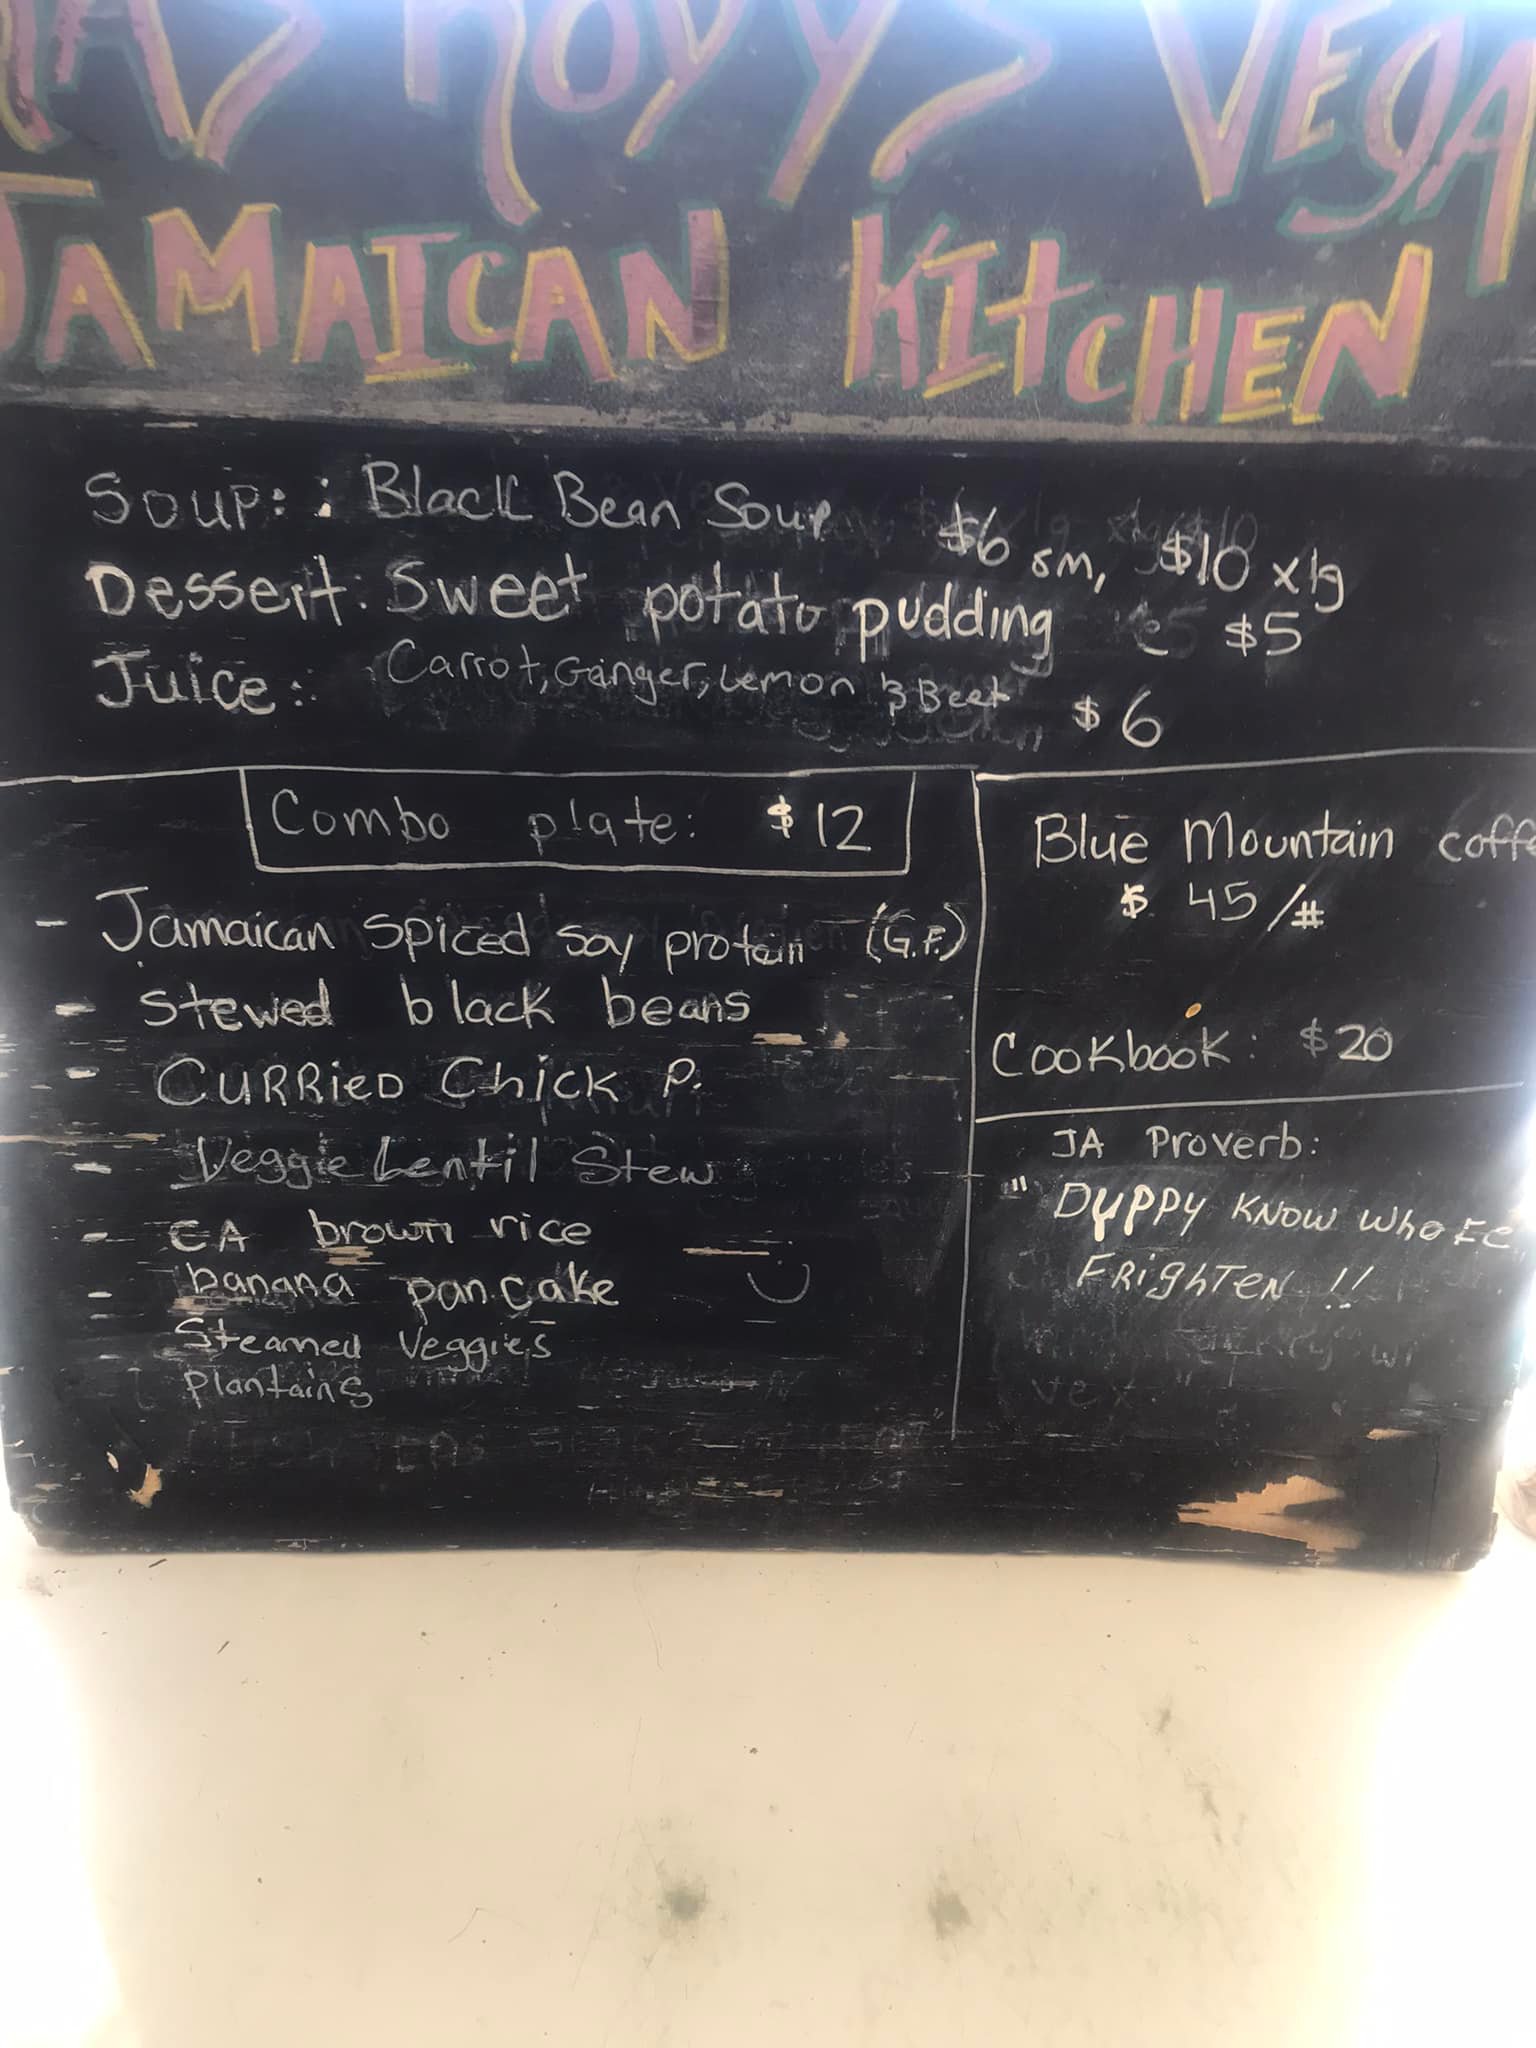 RAS ROVY'S VEGA
JAMAICAN KITCHEN
Soup: : Black Bean Soup $6 sm, $10 xlg
Dessert: Sweet potato pudding $5
Juice: Carrot, Ginger, Lemon & Beet $6
Combo plate: $12
- Jamaican spiced soy protein (G.F.)
- Stewed black beans
- CURRIED Chick P.
- Veggie Lentil Stew
- CA brown rice
- banana pancake
Steamed Veggies
plantains
Blue Mountain coffe
$ 45/#
Cookbook: $20
JA Proverb:
" DUPPY KNOW WHO FE
FRIGHTEN !!